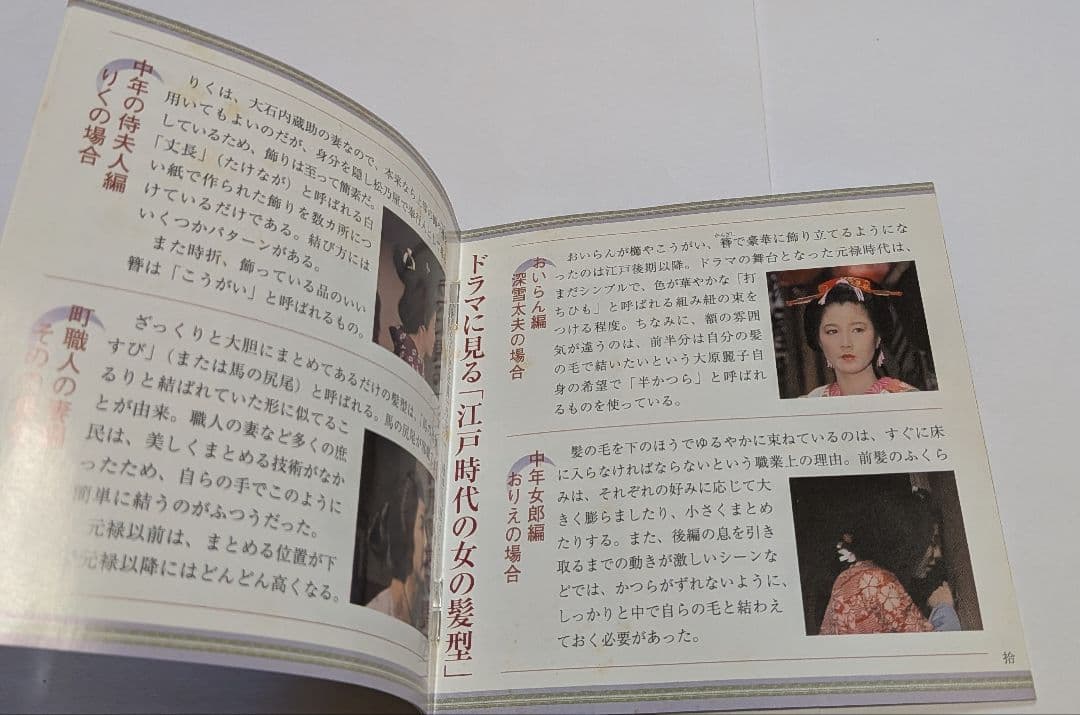 中年の侍夫人編
りくの場合
りくは、大石内蔵助の妻なので、本来なら
用いてもよいのだが、身分を隠し松乃屋で
しているため、飾りは至って簡素だ。
「丈長」(たけなが)と呼ばれる白
い紙で作られた飾りを数カ所につ
けているだけである。結び方には
いくつかパターンがある。
また時折、飾っている品のいい
簪は「こうがい」と呼ばれるもの。
町職人の妻
ざっくりと大胆にまとめてあるだけの髪型は、
すび」(または馬の尻尾)と呼ばれる。馬の尻尾が
るりと結ばれていた形に似てるこ
とが由来。職人の妻など多くの庶
民は、美しくまとめる技術がなか
ったため、自らの手でこのように
簡単に結うのがふつうだった。
元禄以前は、まとめる位置が下
元禄以降にはどんどん高くなる。
ドラマに見る「江戸時代の女の髪型」
おいらん編
深雪太夫の場合
おいらんが櫛やこうがい、簪で豪華に飾り立てるようにな
かんざし
ったのは江戸後期以降。ドラマの舞台となった元禄時代は、
まだシンプルで、色が華やかな「打
ちひも」と呼ばれる組み紐の束を
つける程度。ちなみに、額の雰囲
気が違うのは、前半分は自分の髪
の毛で結いたいという大原麗子自
身の希望で「半かつら」と呼ばれ
るものを使っている。
中年女郎編
おりえの場合
髪の毛を下のほうでゆるやかに束ねているのは、すぐに床
に入らなければならないという職業上の理由。前髪のふくら
みは、それぞれの好みに応じて大
きく膨らましたり、小さくまとめ
たりする。また、後編の息を引き
取るまでの動きが激しいシーンな
どでは、かつらがずれないように、
しっかりと中で自らの毛と結わえ
ておく必要があった。
拾